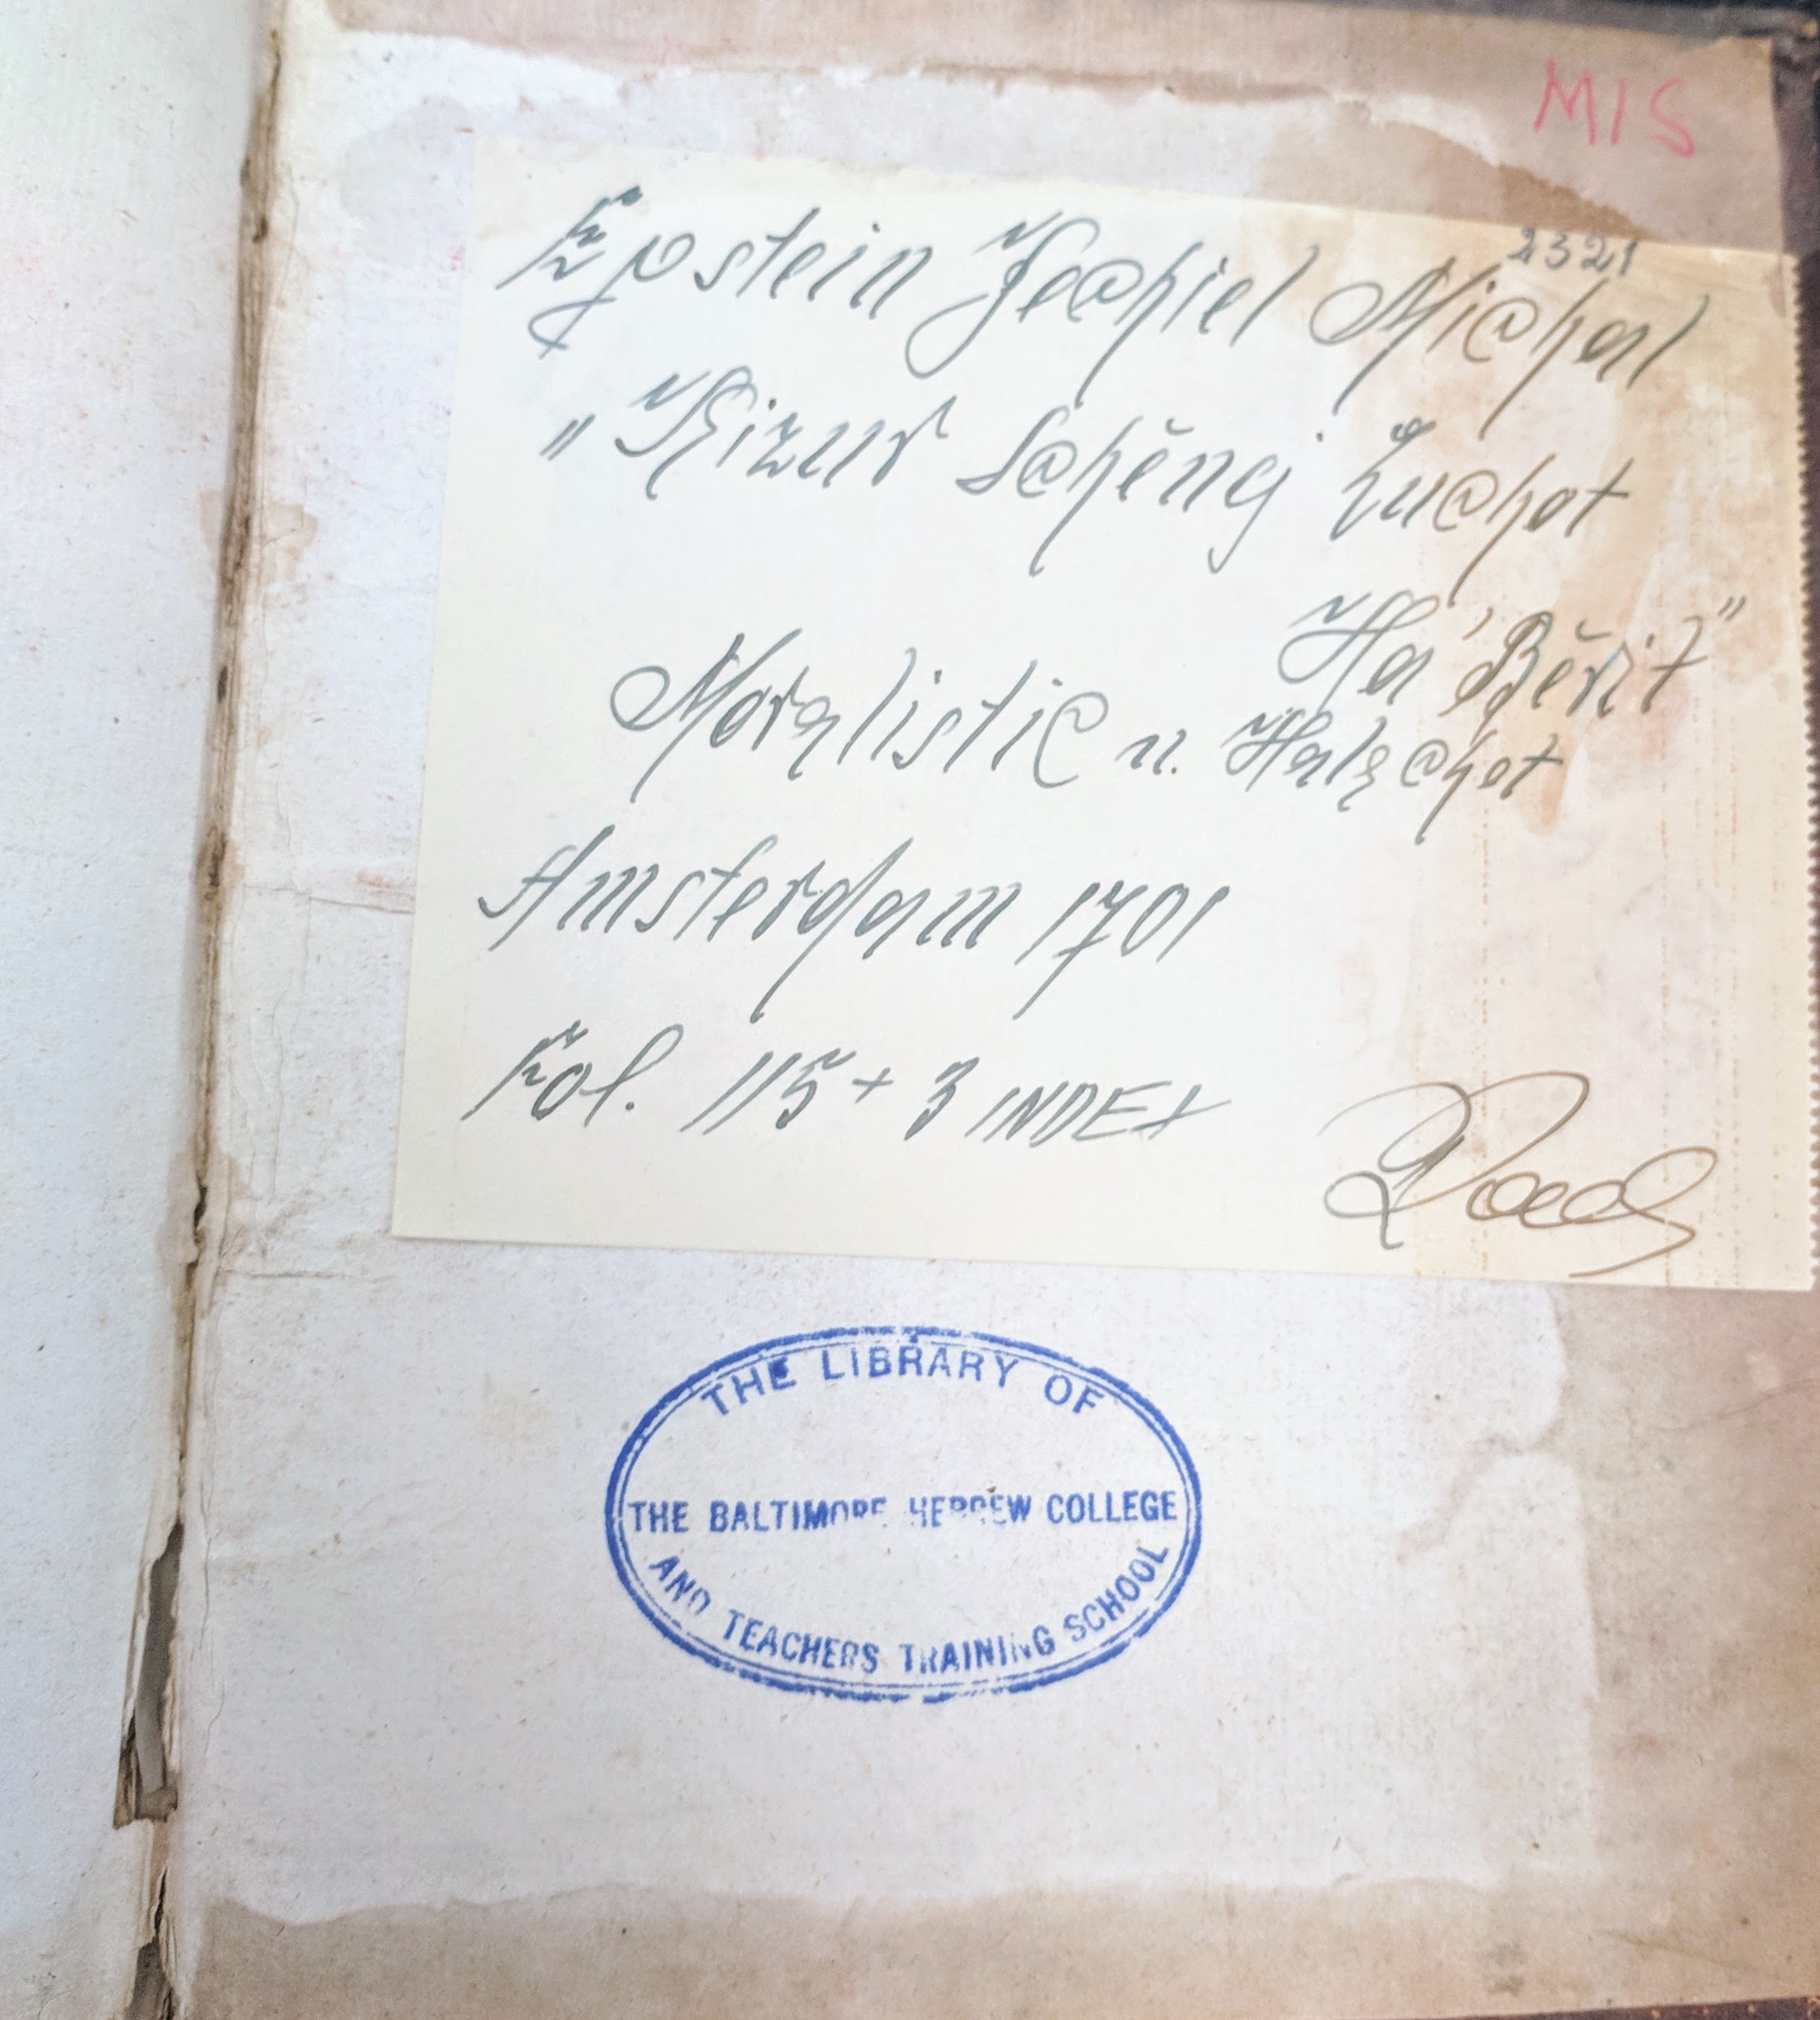 MIS
2321
Epstein Jechiel Michal
„Kizur Schĕnej Luchot
Ha'Bĕrit"
Moralistic u. Halachot
Amsterdam 1701
Fol. 115 + 3 INDEX
THE LIBRARY OF
THE BALTIMORE HEBREW COLLEGE
AND TEACHERS TRAINING SCHOOL